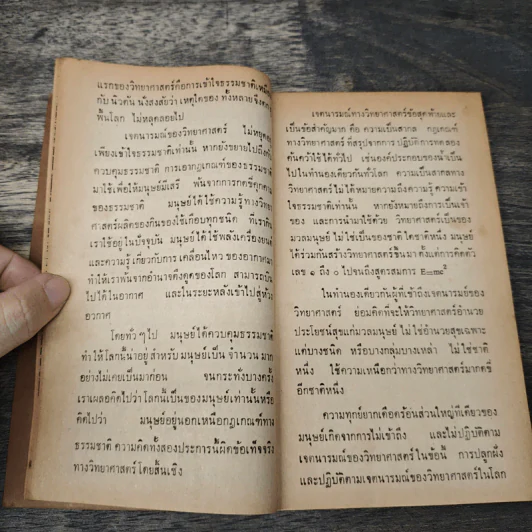 แรกของวิทยาศาสตร์คือการเข้าใจธรรมชาติเหมือน
กับ นิวตัน นั่งสงสัยว่า เหตุใดของ ทั้งหลาย จึงตก
พื้นโลก ไม่หลุดลอยไป
เจตนารมณ์ของวิทยาศาสตร์ ไม่หยุดอยู่
เพียงเข้าใจธรรมชาติเท่านั้น หากยังขยายไปถึงการ
ควบคุมธรรมชาติ การเอากฎเกณฑ์ของธรรมชาติ
มาใช้เพื่อให้มนุษย์มีเสรี พ้นจากการกดขี่คุกคาม
ของธรรมชาติ มนุษย์ได้ใช้ความรู้ทางวิทยา
ศาสตร์ผลิตของกินของใช้เกือบทุกชนิด ที่เรากิน
เราใช้อยู่ในปัจจุบัน มนุษย์ได้ใช้พลังเครื่องยนต์
และความรู้เกี่ยวกับการ เคลื่อนไหว ของอากาศมา
ทำให้เราพ้นจากอำนาจดึงดูดของโลก สามารถบิน
ไปได้ในอากาศ และในระยะหลังเข้าไปสู่ห้วง
อวกาศ
โดยทั่วๆไป มนุษย์ได้ควบคุมธรรมชาติ
ทำให้โลกน่าอยู่ สำหรับ มนุษย์เป็น จำนวน มาก
อย่างไม่เคยเป็นมาก่อน จนกระทั่งบางครั้ง
เราเผลอคิดไปว่า โลกนี้เป็นของมนุษย์เท่านั้นหรือ
คิดไปว่า มนุษย์อยู่นอกเหนือกฎเกณฑ์ทาง
ธรรมชาติ ความคิดทั้งสองประการนี้ผิดข้อเท็จจริง
ทางวิทยาศาสตร์โดยสิ้นเชิง
เจตนารมณ์ทางวิทยาศาสตร์ข้อสุดท้ายและ
เป็นข้อสำคัญมาก คือ ความเป็นสากล กฎเกณฑ์
ทางวิทยาศาสตร์ ที่สรุปจากการ ปฏิบัติการทดลอง
ค้นคว้าใช้ได้ทั่วไป เช่นองค์ประกอบของน้ำเป็น
ไปในทำนองเดียวกันทั่วโลก ความเป็นสากลทาง
วิทยาศาสตร์ไม่ได้หมายความถึงความรู้ ความเข้า
ใจธรรมชาติเท่านั้น หากยังหมายถึงการเป็นเจ้า
ของ และการนำมาใช้ด้วย วิทยาศาสตร์เป็นของ
มวลมนุษย์ ไม่ใช่เป็นของชาติใดชาติหนึ่ง มนุษย์
ได้ร่วมกันสร้างวิทยาศาสตร์ขึ้นมา ตั้งแต่การคิดตัว
เลข ๑ ถึง ๐ ไปจนถึงสูตรสมการ E=mc²
ในทำนองเดียวกันผู้ที่เข้าถึงเจตนารมย์ของ
วิทยาศาสตร์ ย่อมคิดที่จะให้วิทยาศาสตร์อำนวย
ประโยชน์สุขแก่มวลมนุษย์ ไม่ใช่อำนวยสุขเฉพาะ
แต่บางชนิด หรือบางกลุ่มบางเหล่า ไม่ใช่ชาติ
หนึ่ง ใช้ความเหนือกว่าทางวิทยาศาสตร์มากดขี่
อีกชาติหนึ่ง
ความทุกข์ยากเดือดร้อนส่วนใหญ่ที่เดียวของ
มนุษย์เกิดจากการไม่เข้าถึง และไม่ปฏิบัติตาม
เจตนารมณ์ของวิทยาศาสตร์ในข้อนี้ การปลูกฝัง
และปฏิบัติตามเจตนารมณ์ของวิทยาศาสตร์ในโลก